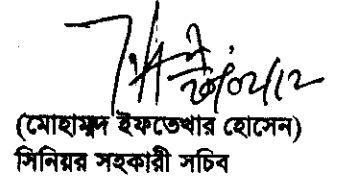 (মোহাম্মদ ইফতেখার হোসেন)
সিনিয়র সহকারী সচিব